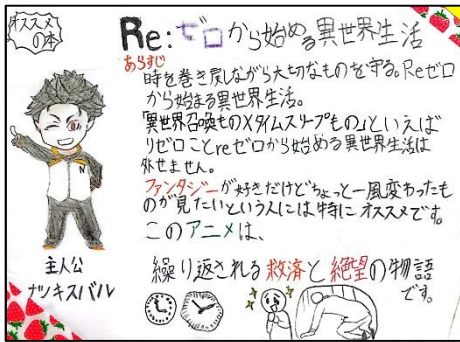 オススメ
の本
Re:ゼロから始める異世界生活
あらすじ
時を巻き戻しながら大切なものを守る。Reゼロ
から始まる異世界生活。
「異世界召喚もの×タイムスリープもの」といえば
リゼロことreゼロから始める異世界生活は
外せません。
ファンタジーが好きだけどちょっと一風変わったも
のが見たいという人には特にオススメです。
このアニメは、
繰り返される救済と絶望の物語
です。
主人公
ナツキスバル
N